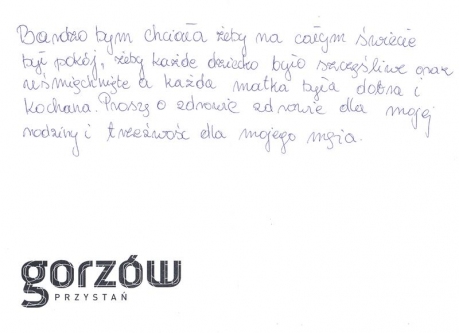 Bardzo bym chciała żeby na całym świecie
był pokój, żeby każde dziecko było szczęśliwe oraz
uśmiechnięte a każda matka była dobra i
kochana. Proszę o zdrowie zdrowie dla mojej
rodziny i trzeźwość dla mojego męża.
gorzów
PRZYSTAŃ